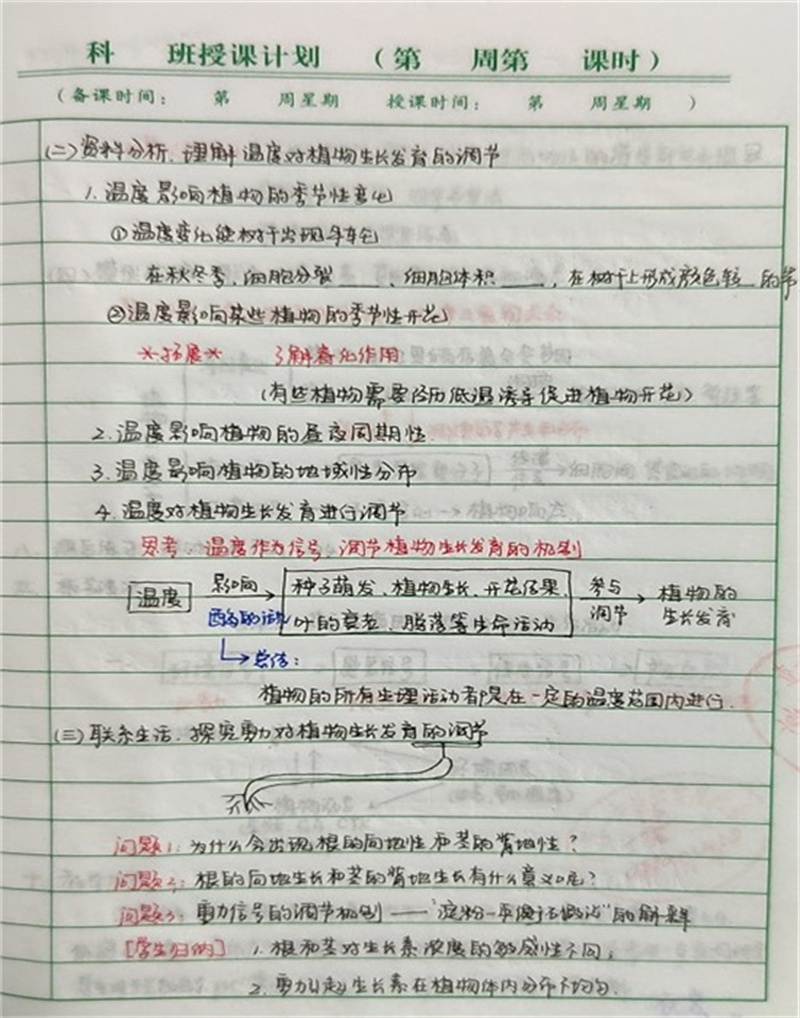 科 班授课计划 （第 周第 课时）
（备课时间： 第 周星期 授课时间： 第 周星期 ）
(二)资料分析，理解温度对植物生长发育的调节
1. 温度影响植物的季节性变化
①温度变化使树干出现年轮
在秋冬季，细胞分裂____，细胞体积____，在树干上形成颜色较__的带
②温度影响某些植物的季节性开花
*拓展* 了解春化作用
(有些植物需要经历低温诱导促进植物开花)
2. 温度影响植物的昼夜周期性.
3. 温度影响植物的地域性分布
4. 温度对植物生长发育进行调节
思考：温度作为信号，调节植物生长发育的机制
温度 影响 酶的活性 种子萌发、植物生长、开花结果、 参与 调节 植物的
叶的衰老、脱落等生命活动 生长发育
总结：
植物的所有生理活动都是在一定的温度范围内进行.
(三)联系生活，探究重力对植物生长发育的调节
问题1：为什么会出现根的向地性和茎的背地性？
问题2：根的向地生长和茎的背地生长有什么意义呢？
问题3：重力信号的调节机制——"淀粉—平衡石假说"的解释
[学生归纳] 1. 根和茎对生长素浓度的敏感性不同；
2. 重力引起生长素在植物体内分布不均匀.